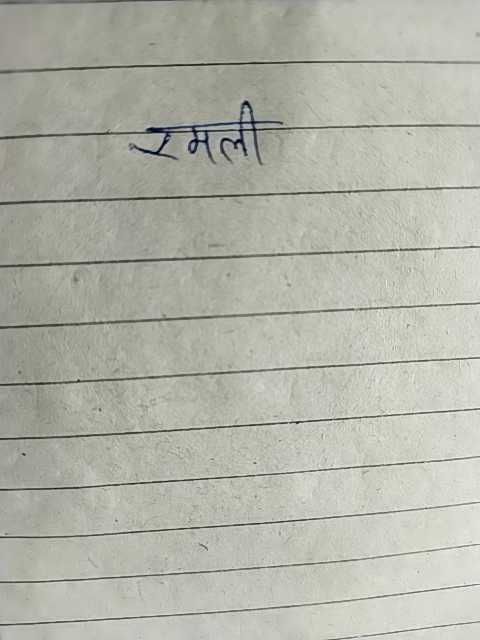 रमली